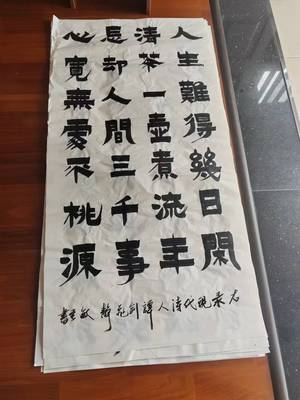 人生難得幾日閑
清茶一壺煮流年
忘却人間三千事
心寬無處不桃源
右录現代诗人譚剑飛
書